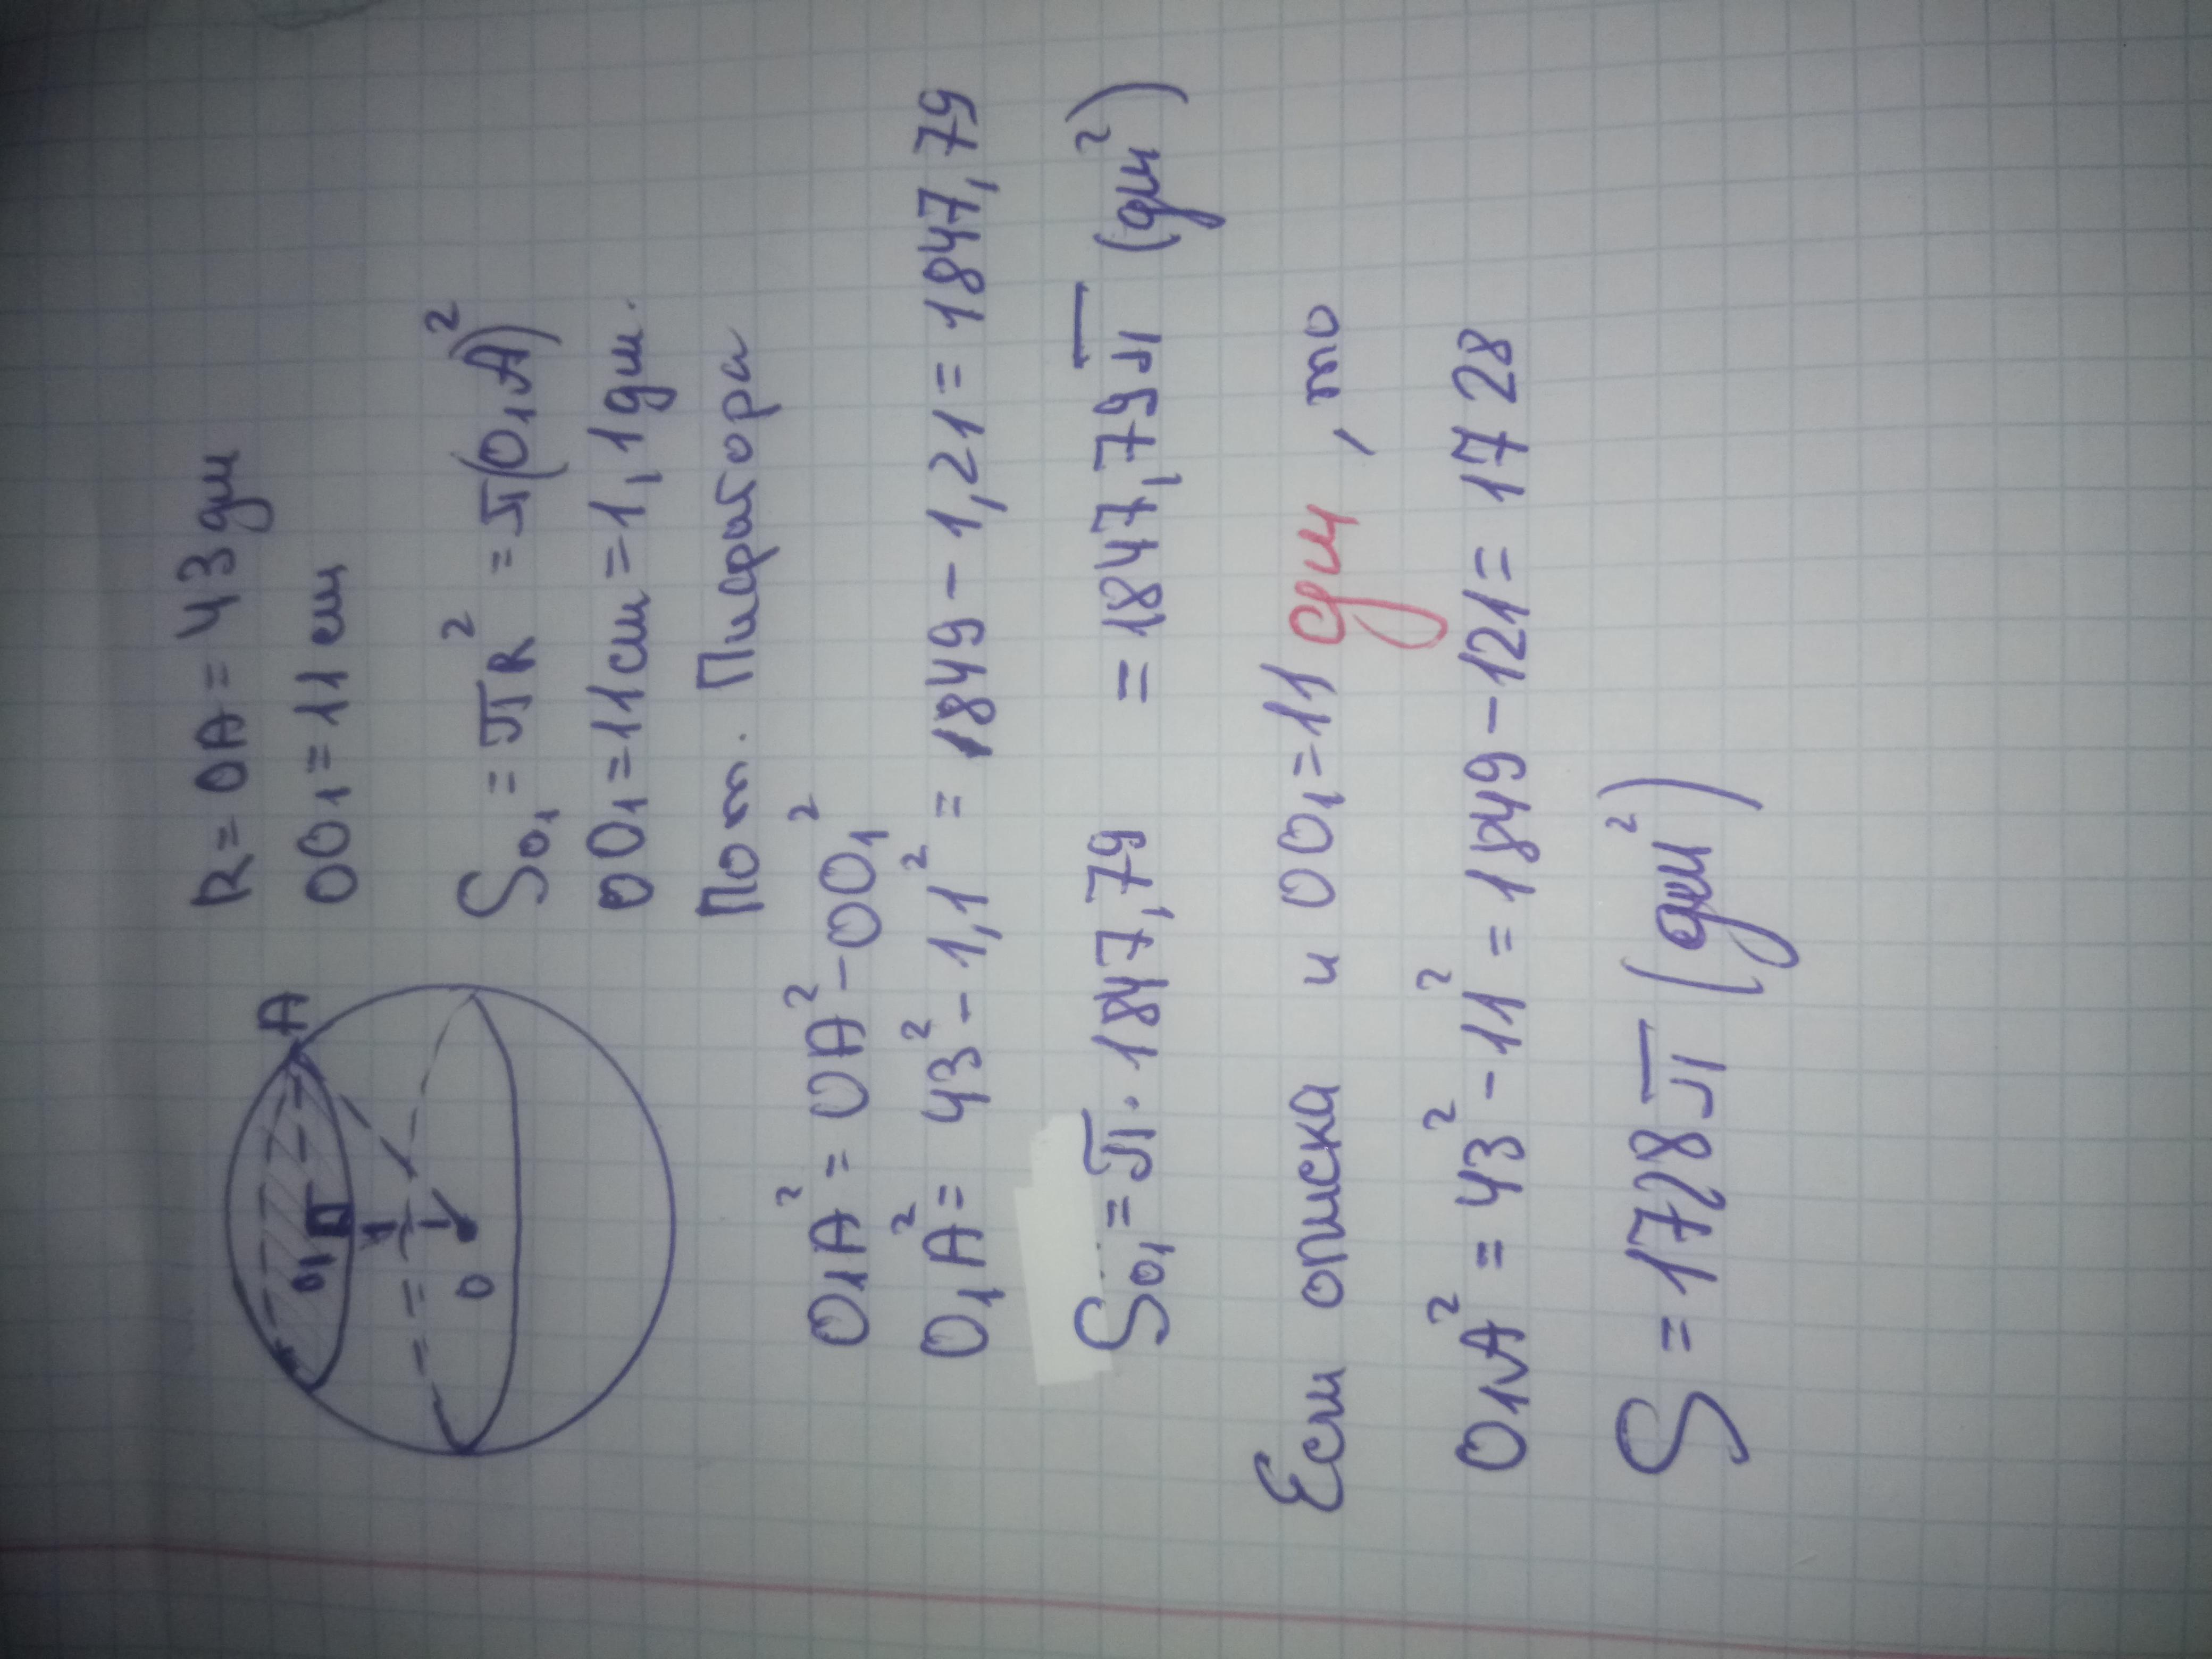 A
O₁
O
R = OA = 43 дм
OO₁ = 11 см
S₀₁ = πR² = π(O₁A)²
OO₁ = 11 см = 1,1 дм.
По т. Пифагора
O₁A² = OA² - OO₁²
O₁A² = 43² - 1,1² = 1849 - 1,21 = 1847,79
S₀₁ = π · 1847,79 = 1847,79π (дм²)
Если описка и OO₁ = 11 дм, то
O₁A² = 43² - 11² = 1849 - 121 = 1728
S = 1728π (дм²)